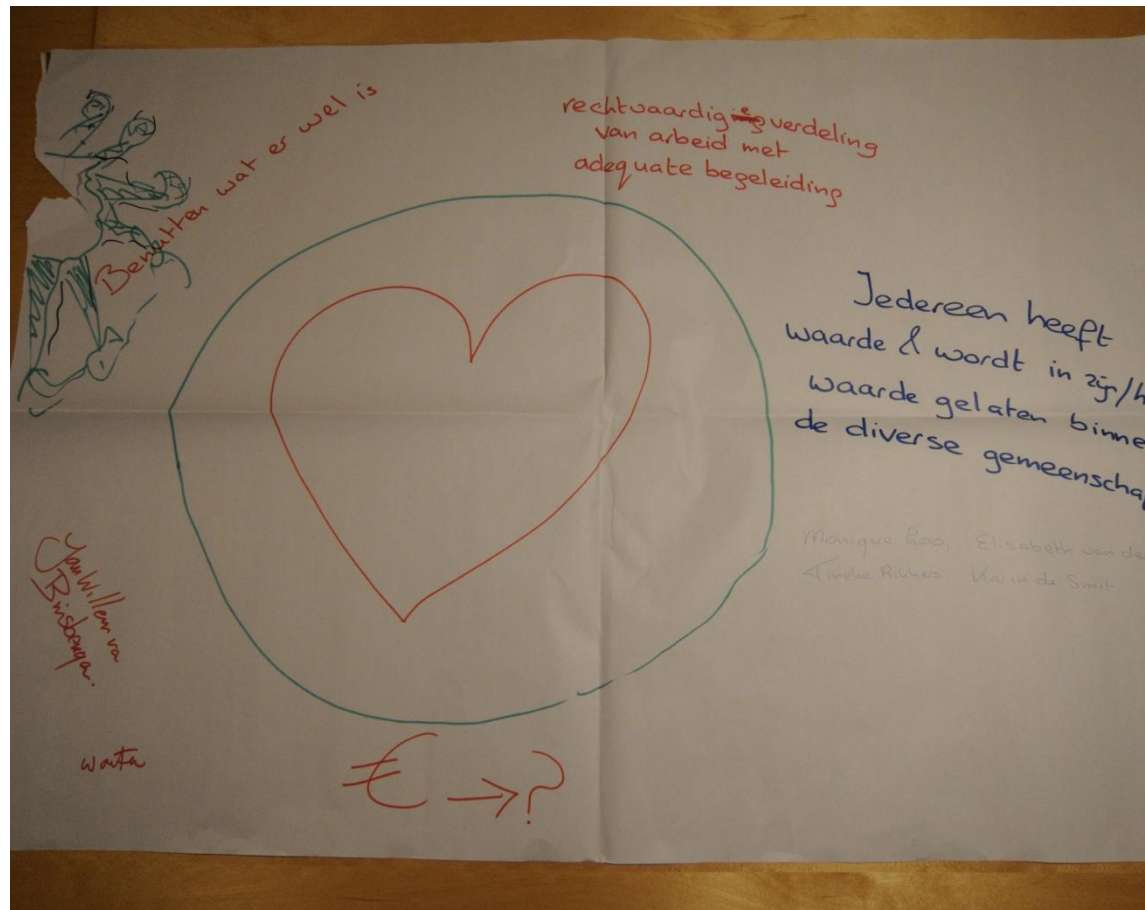 Benutten wat er wel is
rechtvaardige verdeling
van arbeid met
adequate begeleiding
Iedereen heeft
waarde & wordt in zijn/h
waarde gelaten binne
de diverse gemeenschap
Monique Elisabeth van de
Tineke Karin de Smit
Jan Willem va
€ → ?